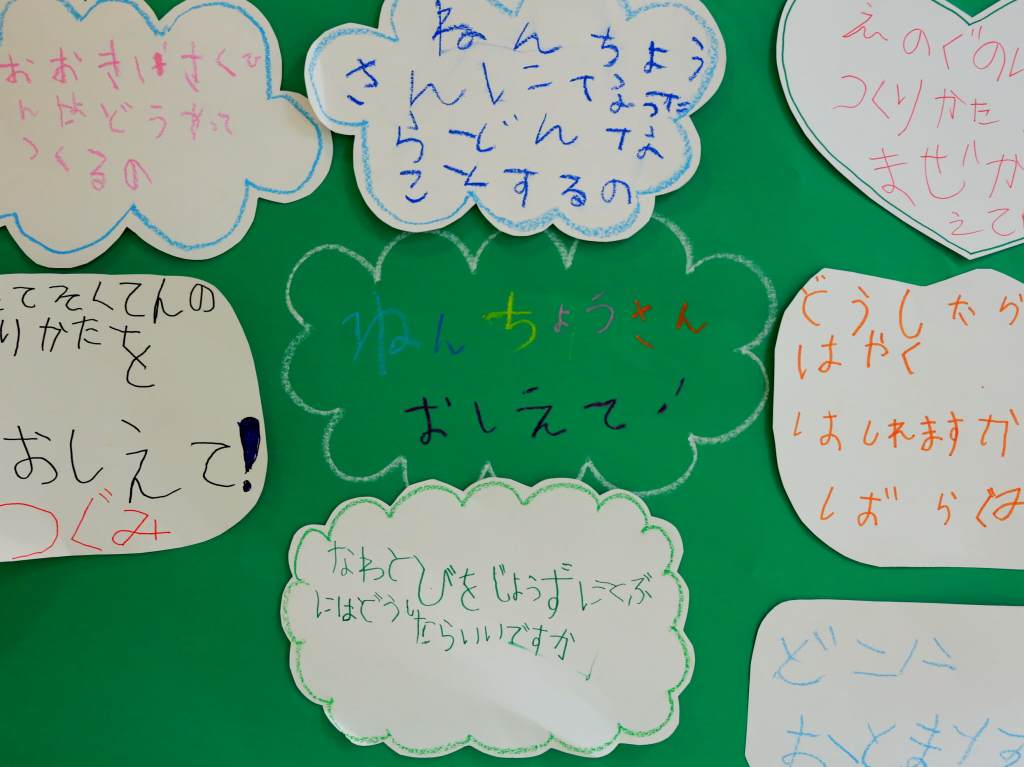 おおきばさくひ
んはどうやって
つくるの
ねんちょう
さんになった
らどんな
ことするの
えのぐの
つくりかた
まぜか
えて
てそくてんの
りかたを
おしえて!
つぐみ
ねんちょうさん
おしえて!
どうしたら
はやく
はしれますか
しばらく
なわとびをじょうずにとぶ
にはどうしたらいいですか
どこに
おとまりする